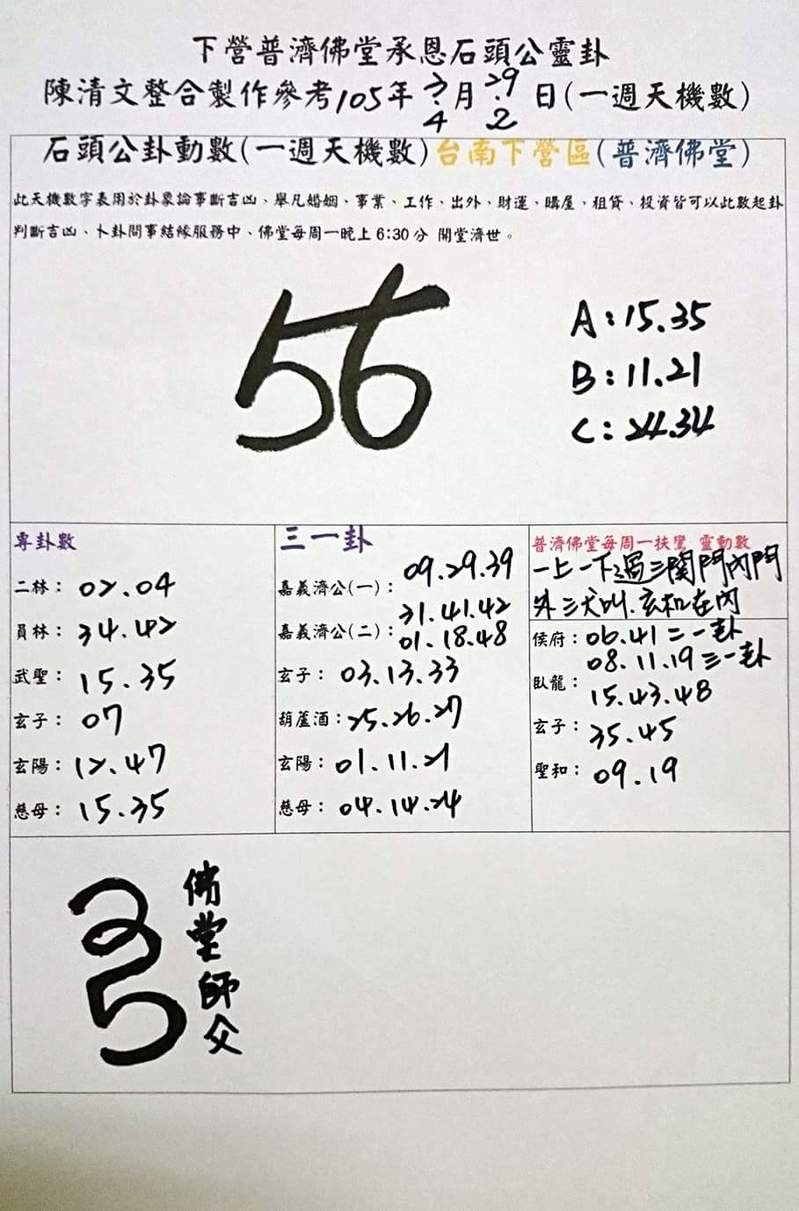 下營普濟佛堂承恩石頭公靈卦
陳清文整合製作參考105年3/4月29/2日(一週天機數)
石頭公卦動數(一週天機數)台南下營區(普濟佛堂)
此天機數字表用於卦象論事斷吉凶、舉凡婚姻、事業、工作、出外、財運、購屋、租賃、投資皆可以此數起卦
判斷吉凶、卜卦問事結緣服務中、佛堂每周一晚上6:30分 開堂濟世。
56
A:15.35
B:11.21
C:24.34
專卦數
二林:02.04
員林:34.42
武聖:15.35
玄子:07
玄陽:12.47
慈母:15.35
三一卦
嘉義濟公(一):09.29.39
嘉義濟公(二):31.41.42
01.18.48
玄子:03.13.33
葫蘆酒:25.26.27
玄陽:01.11.21
慈母:04.14.24
普濟佛堂每周一扶鸞 靈動數
一上一下過三関門內門
外三犬叫.玄机在內
侯府:06.41二一卦
08.11.19三一卦
臥龍:15.43.48
玄子:35.45
聖和:09.19
35
佛堂師父